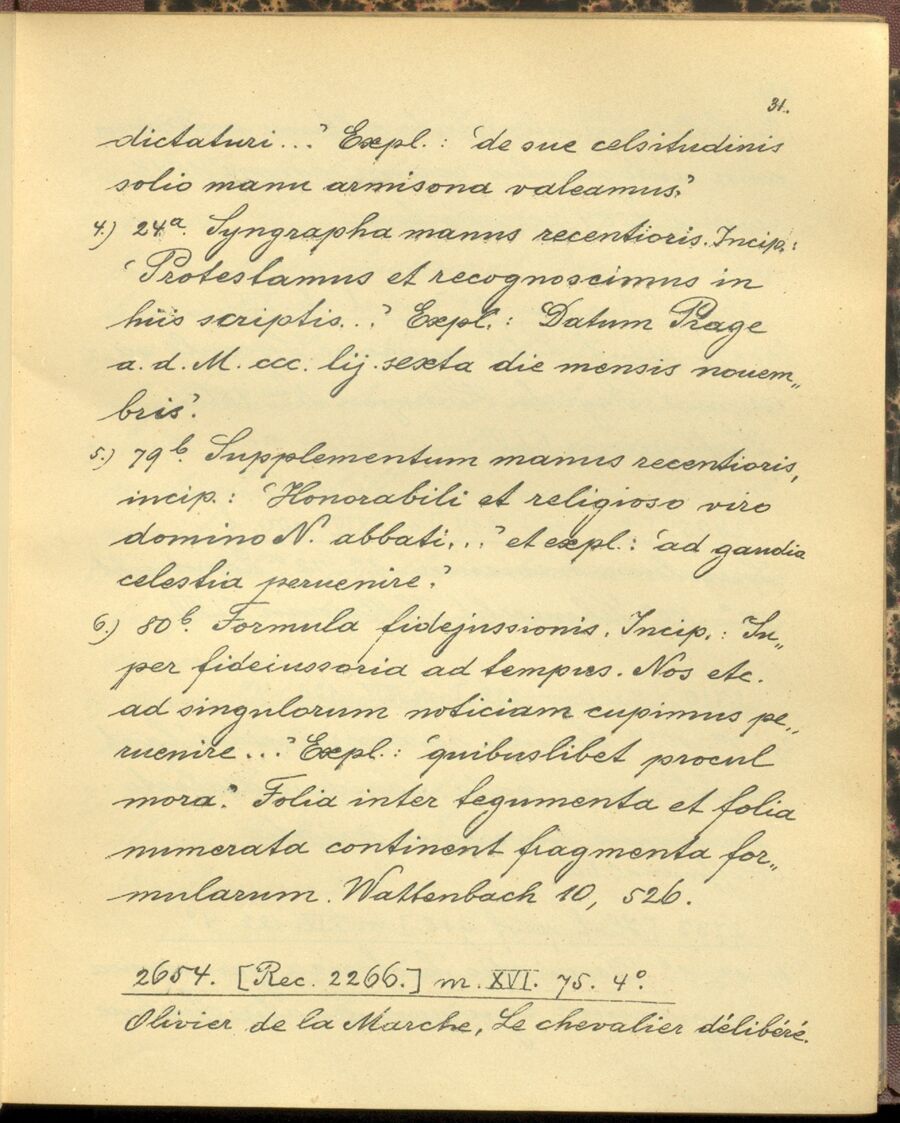 31.
dictaturi...' Expl.: 'de sue celsitudinis
solio manu armisona valeamus.'
4.) 24a. Syngrapha manus recentioris. Incip.:
'Protestamus et recognoscimus in
hiis scriptis...' Expl.: Datum Prage
a. d. M. ccc. lij. sexta die mensis nouem„
bris'.
5.) 79b. Supplementum manus recentioris,
incip.: 'Honorabili et religioso viro
domino N. abbati...' et expl.: 'ad gaudia
celestia peruenire.'
6.) 80b. Formula fidejussionis. Incip.: 'Su„
per fideiussoria ad tempus. Nos etc.
ad singulorum noticiam cupimus pe„
ruenire...' Expl.: 'quibuslibet procul
mora.' Folia inter tegumenta et folia
numerata continent fragmenta for„
mularum. Wattenbach 10, 526.
2654. [Rec. 2266.] m. XVI. 75. 4°.
Olivier de la Marche, Le chevalier délibéré.